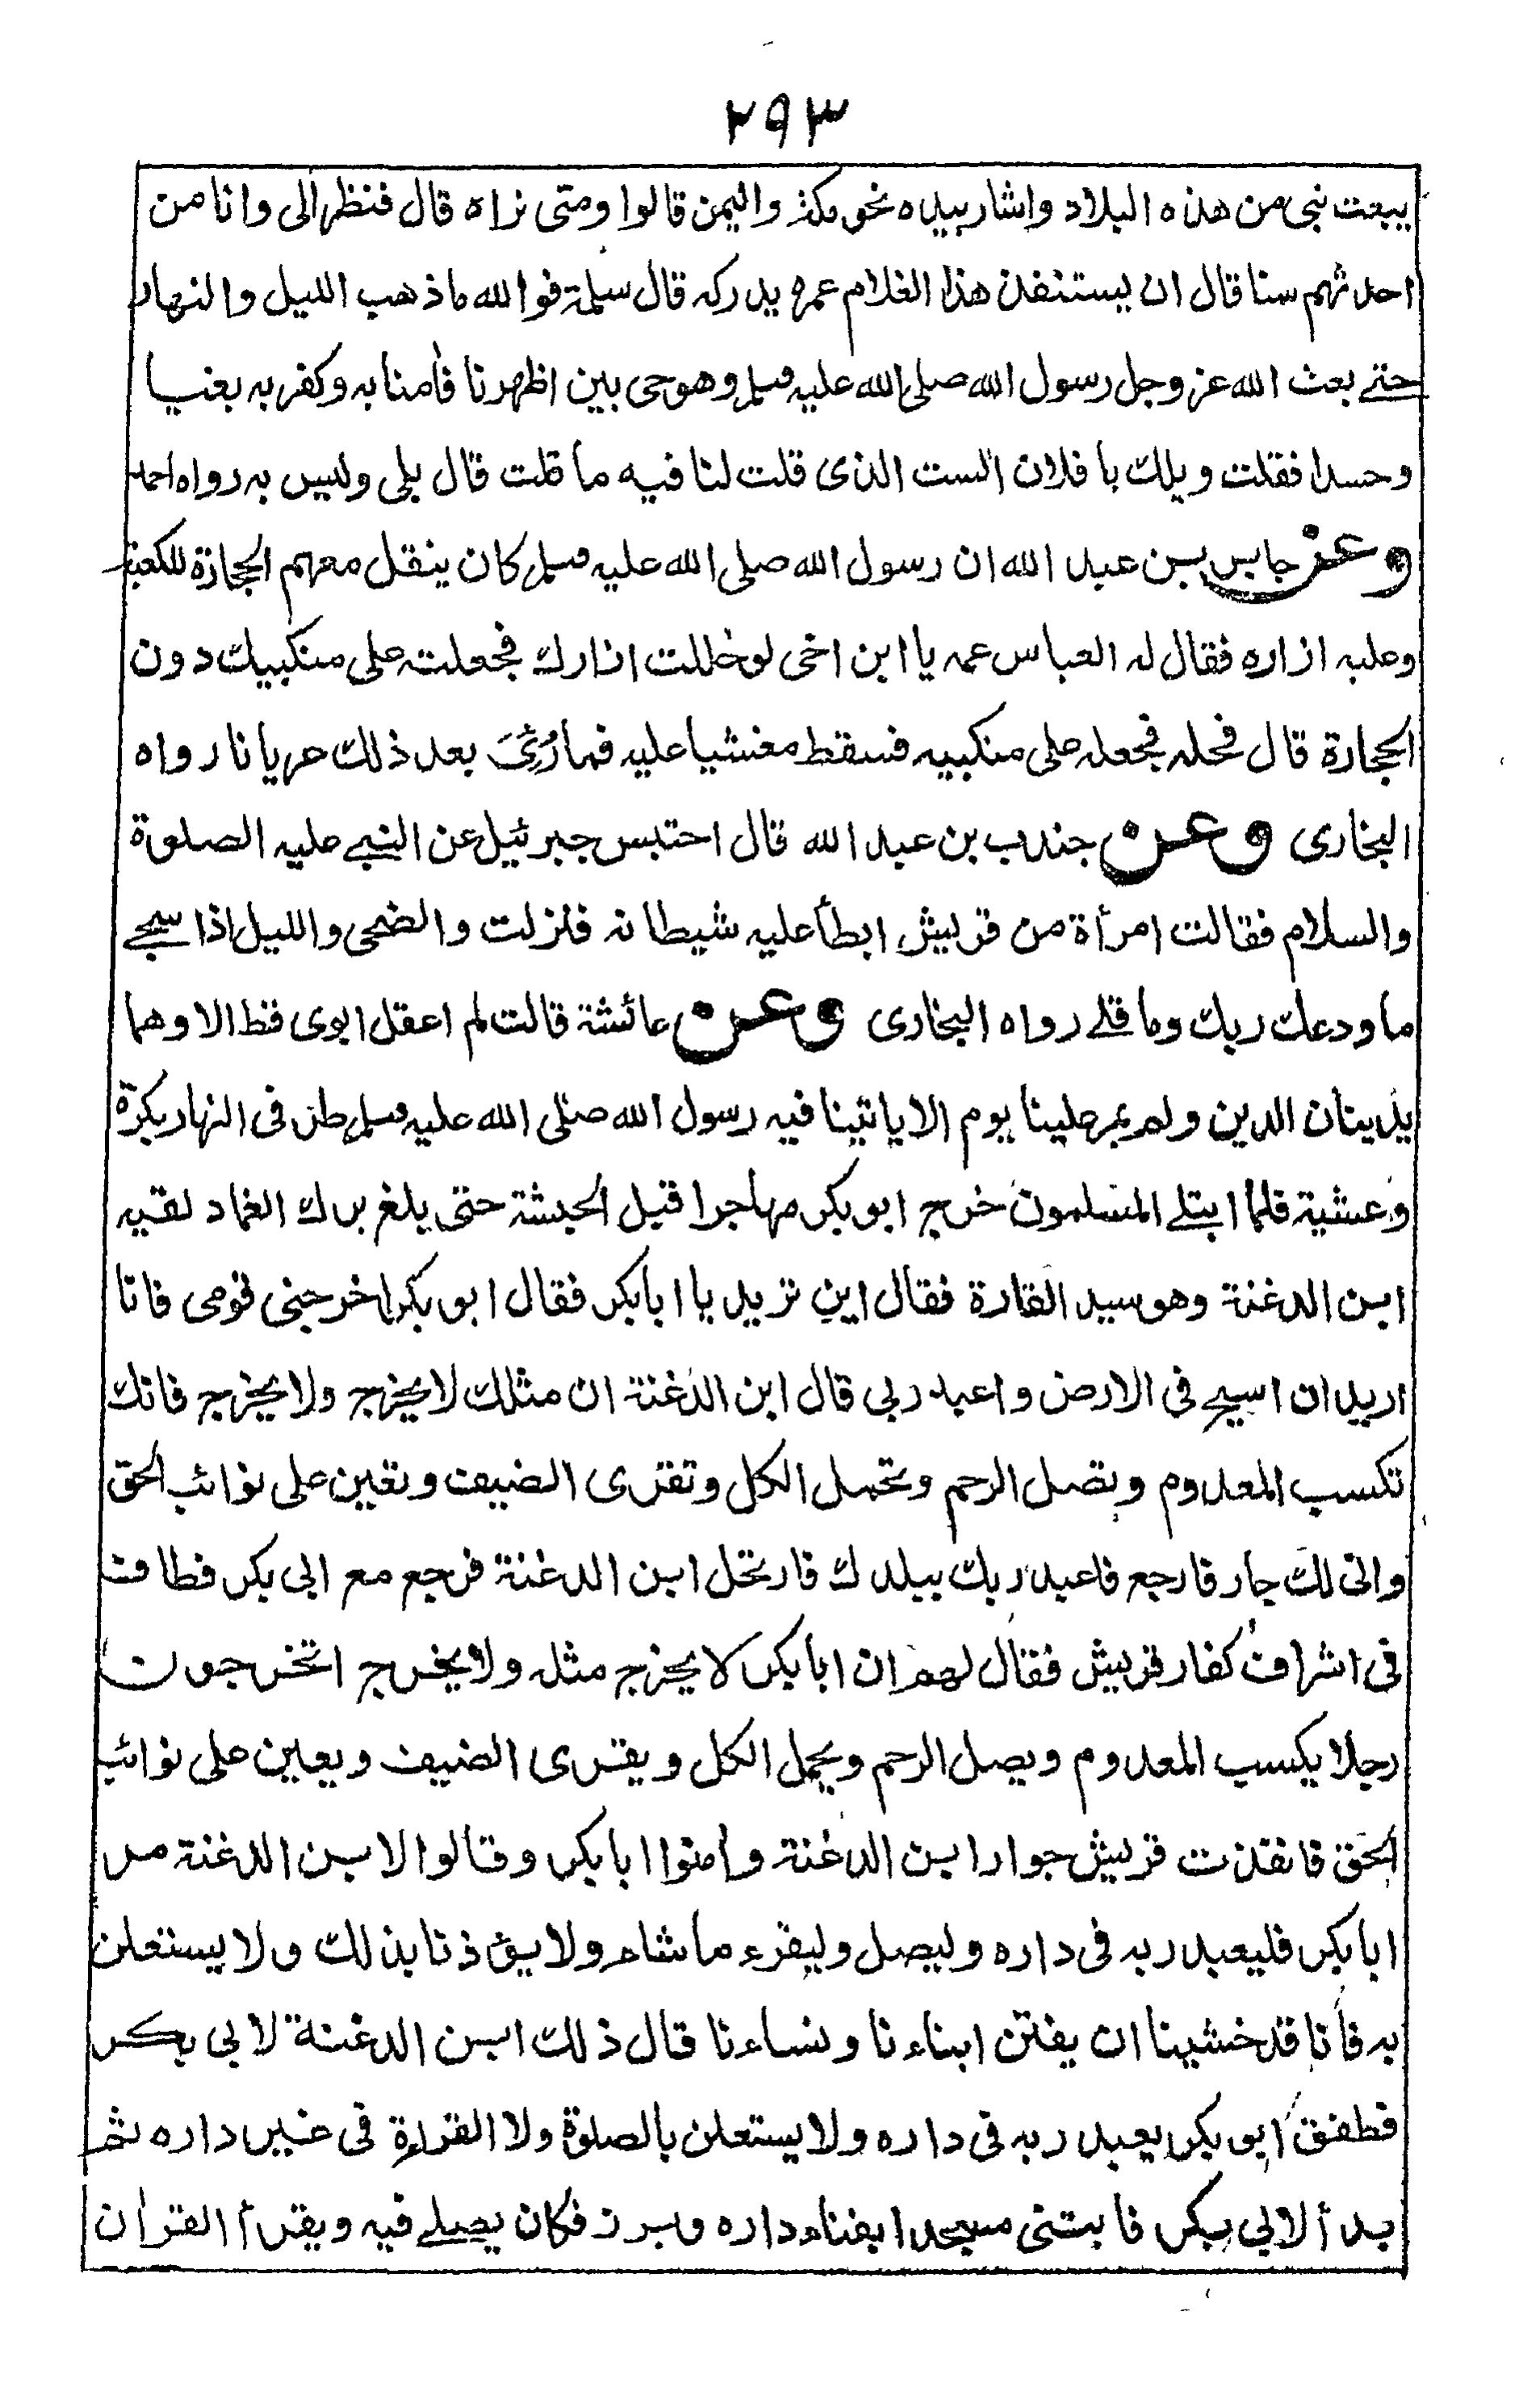 ٢٩٣
يبعث نبي من هذه البلاد واشار بيده نحو مكة واليمن قالوا ومتى نراه قال فنظر الى وانا من
احدثهم سنا قال ان يستنفد هذا الغلام عمره يدركه قال سلمة فوالله ما ذهب الليل والنهار
حتے بعث الله عز وجل رسول الله صلى الله عليه وسلم وهو حى بين اظهرنا فأمنا به وكفر به بغيا
وحسدا فقلت ويلك يا فلان الست الذى قلت لنا فيه ما قلت قال بلى وليس به رواه احمد
وعن جابر بن عبد الله ان رسول الله صلى الله عليه وسلم كان ينقل معهم الحجارة للكعبة
وعليه ازاره فقال له العباس عمه يا ابن اخى لو حللت ازارك فجعلته على منكبيك دون
الحجارة قال فحله فجعله على منكبيه فسقط مغشيا عليه فما رُئِىَ بعد ذلك عريانا رواه
البخارى وعن جندب بن عبد الله قال احتبس جبرئيل عن النبے عليه الصلوة
والسلام فقالت امرأة من قريش ابطأ عليه شيطانه فنزلت والضحى والليل اذا سجے
ما ودعك ربك وما قلے رواه البخارى وعن عائشة قالت لم اعقل ابوى قط الا وهما
يدينان الدين ولم يمر علينا يوم الا ياتينا فيه رسول الله صلى الله عليه وسلم طرفى النهار بكرة
وعشية فلما ابتلے المسلمون خرج ابو بكر مهاجرا قبل الحبشة حتى بلغ برك الغماد لقيه
ابن الدغنة وهو سيد القارة فقال اين تريد يا ابا بكر فقال ابو بكر اخرجنى قومى فانا
اريد ان اسيح فى الارض واعبد ربى قال ابن الدغنة ان مثلك لا يخرج ولا يخرج فانك
تكسب المعدوم وتصل الرحم وتحمل الكل وتقرى الضيف وتعين على نوائب الحق
وانى لك جار فارجع فاعبد ربك ببلدك فارتحل ابن الدغنة فرجع مع ابى بكر فطاف
فى اشراف كفار قريش فقال لهم ان ابا بكر لا يخرج مثله ولا يخرج اتخرجون
رجلا يكسب المعدوم ويصل الرحم ويحمل الكل ويقرى الضيف ويعين على نوائب
الحق فانفذت قريش جوار ابن الدغنة وأمنوا ابا بكر وقالوا لابن الدغنة مر
ابا بكر فليعبد ربه فى داره وليصل وليقرء ما شاء ولا يؤذنا بذلك ولا يستعلن
به فأنا قد خشينا ان يفتن ابناءنا ونساءنا قال ذلك ابن الدغنة لابى بكر
فطفق ابو بكر يعبد ربه فى داره ولا يستعلن بالصلوة ولا القراءة فى غير داره ثم
بدأ لابى بكر فابتنى مسجدا بفناء داره وبرز فكان يصلے فيه ويقرأ القرأن